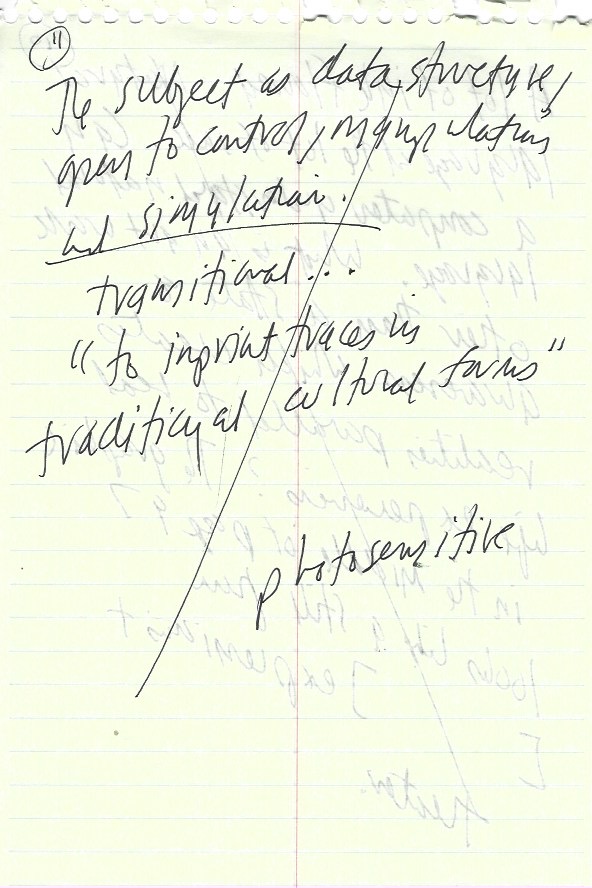 11
The subject as data structure,
open to control, manipulation
and simulation.
transitional...
"to imprint traces in
traditional cultural forms"
photosensitive